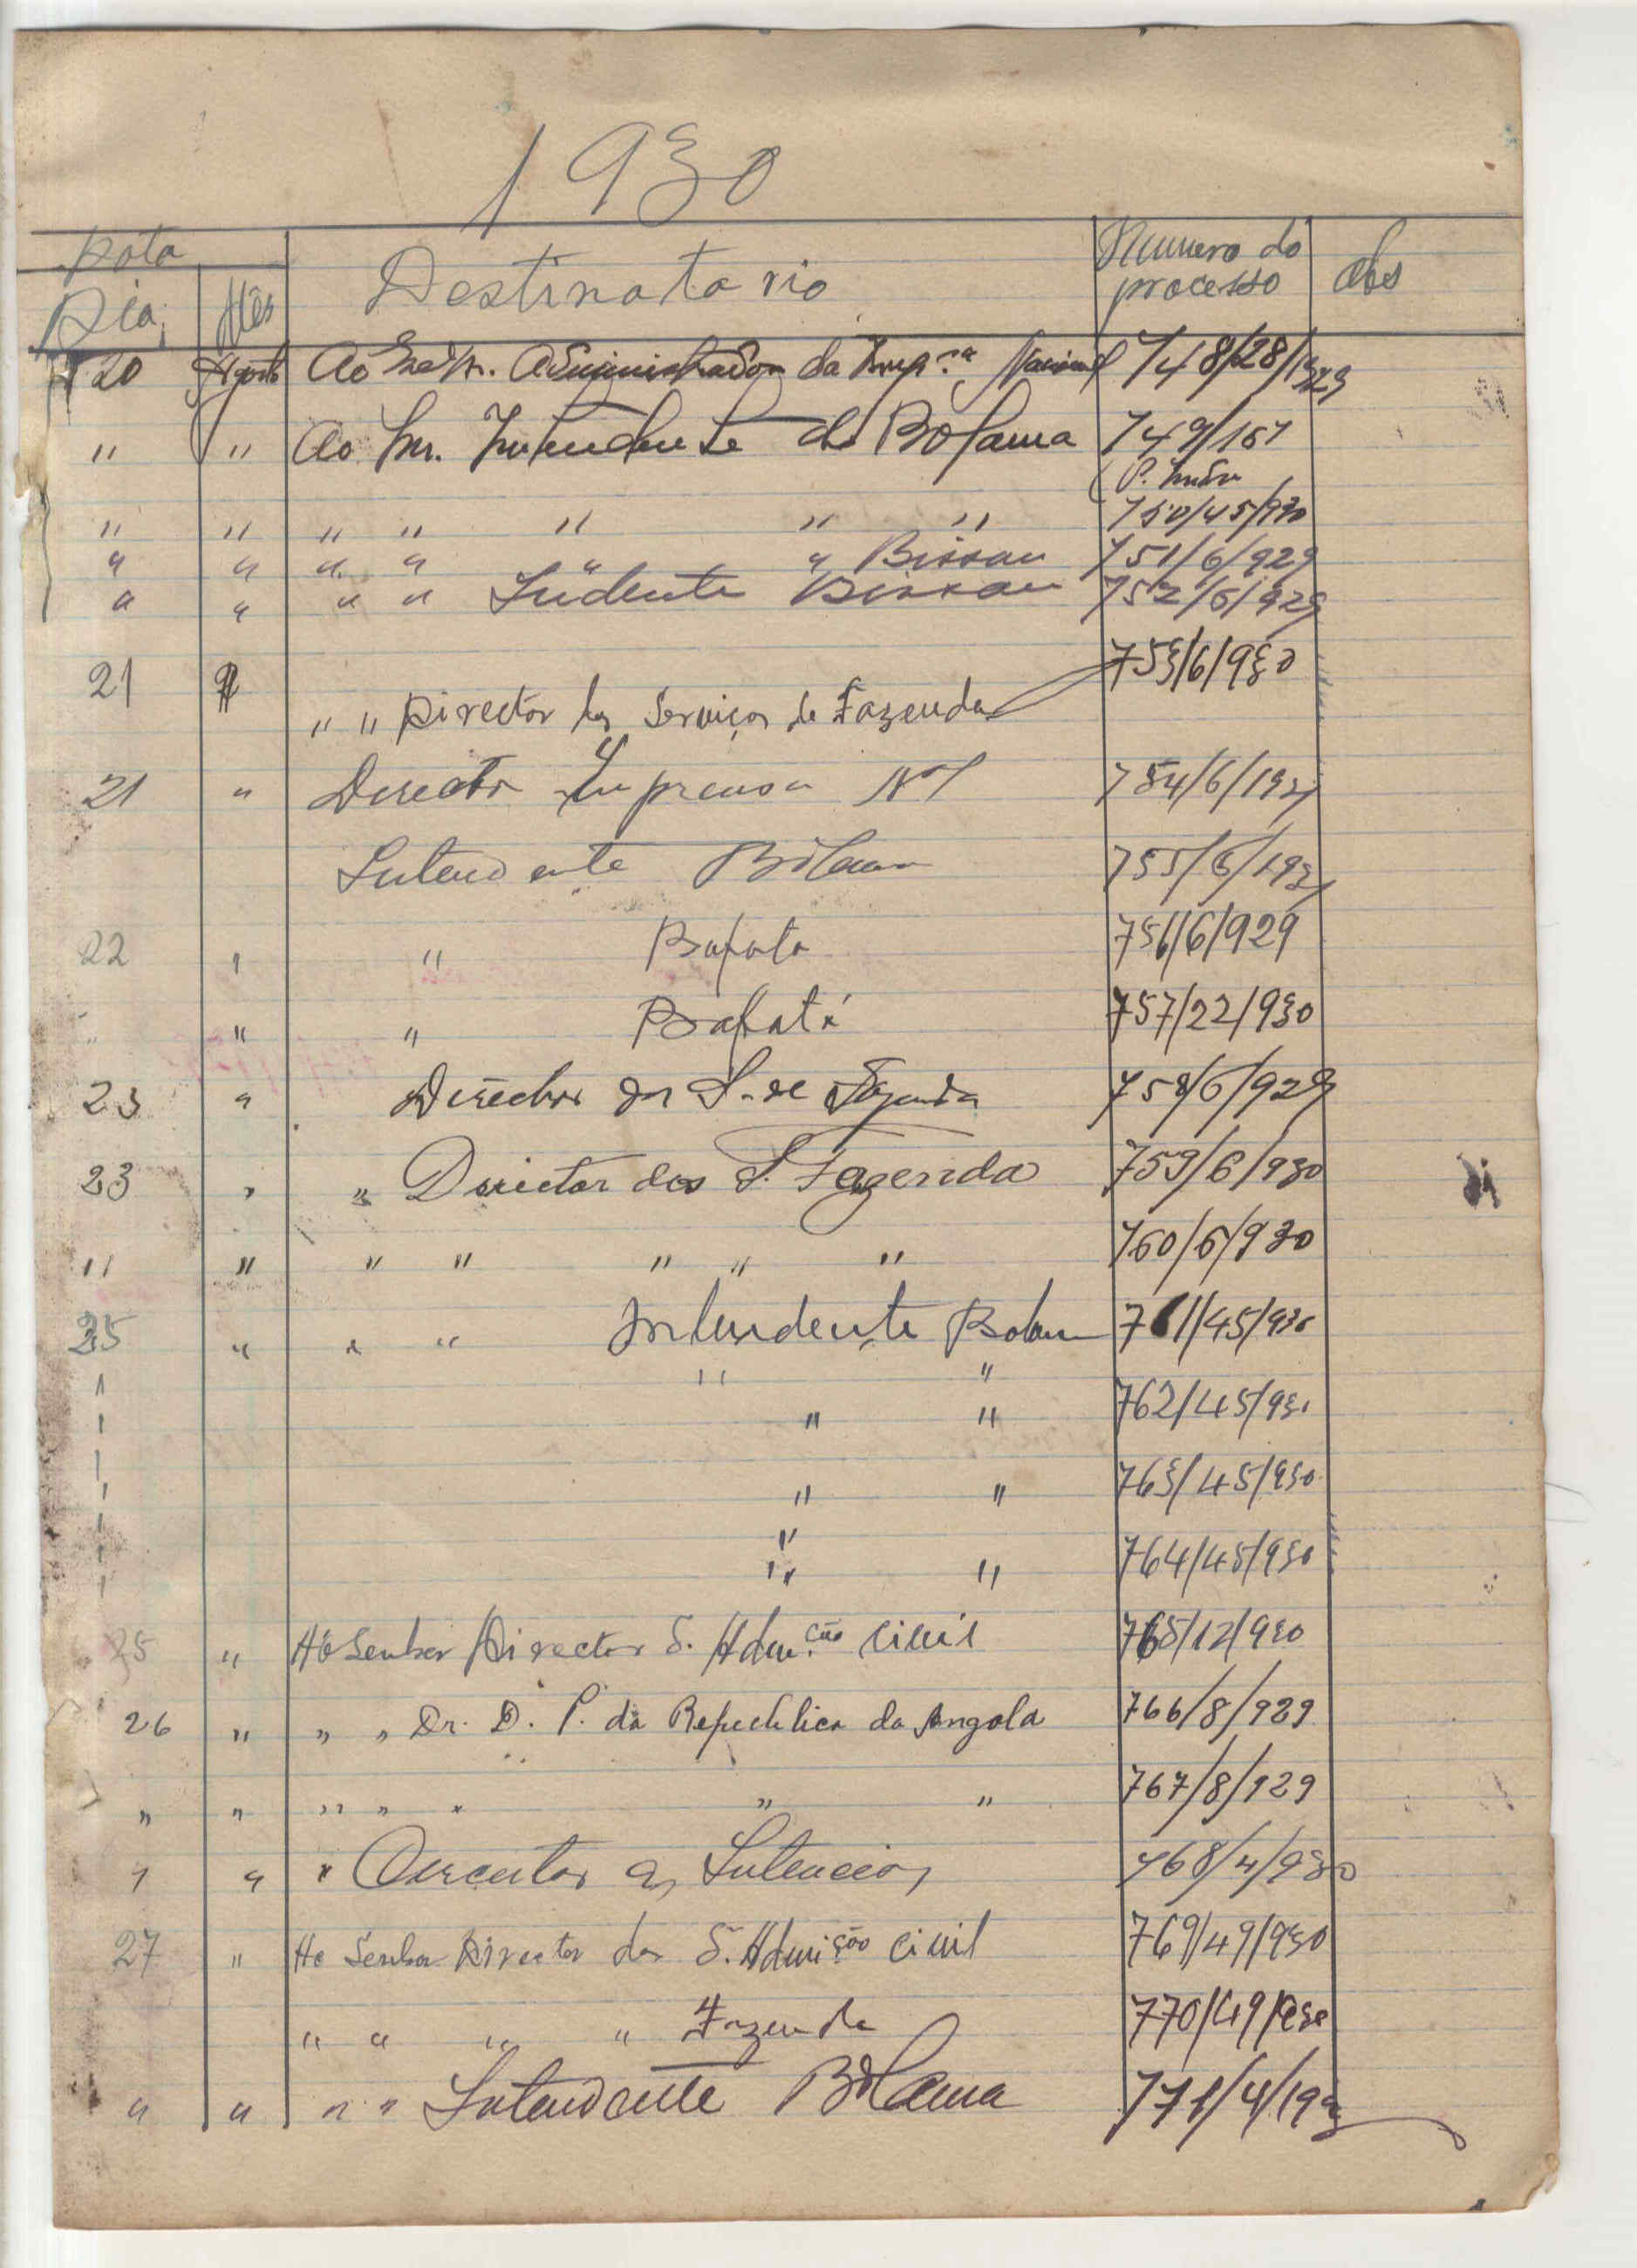 1930
Data Destinatario Numero do processo obs
Dia Mês
20 Agosto Ao Administrador da Imp.ra Nacional 748/28/1929
" " Ao Snr. Intendente de Bolama 749/167
750/45/930
" " " " " " "
" " " " " " Bissau 751/6/929
" " " " Bissau 752/6/929
21 " 753/6/930
" " Director dos Serviços de Fazenda
21 " Director Imprensa Nal 754/6/193
Intendente Bolama 755/6/193
22 " " Bafata 756/6/929
" " " Bafatá 757/22/930
23 " Director dos S. de Fazenda 758/6/929
23 " " Director dos S. Fazenda 759/6/930
" " " " " " " 760/6/930
25 " " " Intendente Bolama 761/45/930
" "
" " 762/45/930
" " 763/45/930
"
" " 764/45/930
25 " Ao Senhor Director S. Adm.ção Civil 765/12/930
26 " " " Dr. D. P. da Republica da Angola 766/8/929
" " " " " " " 767/8/929
" " " 768/4/930
27 " Ao Senhor Director dos S. Admição Civil 769/49/930
" " " " Fazenda 770/49/930
" " " " Intendente Bolama 771/4/193